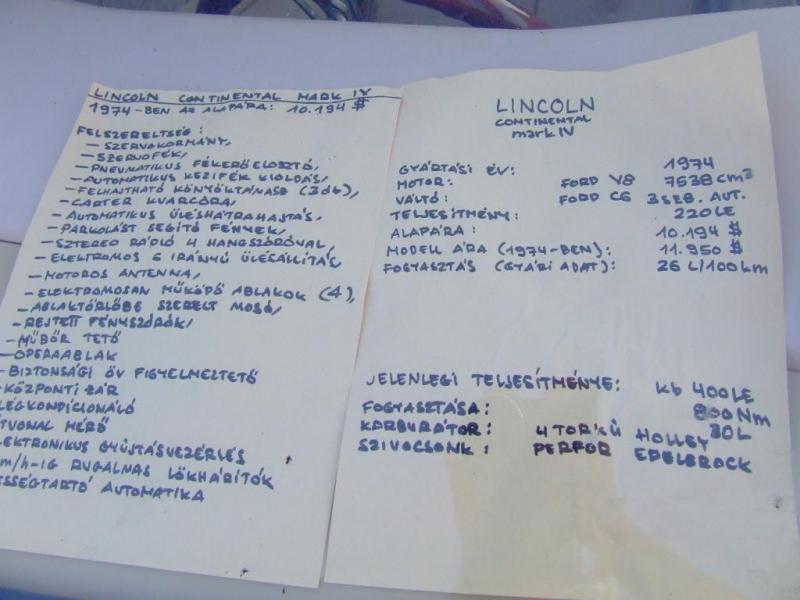 LINCOLN CONTINENTAL MARK IV
1974-BEN AZ ALAPÁRA: 10.194 $
FELSZERELTSÉG:
- SZERVOKORMÁNY,
- SZERVOFÉK,
- PNEUMATIKUS FÉKERŐ ELOSZTÓ,
- AUTOMATIKUS KÉZIFÉK KIOLDÁS,
- FELHAJTHATÓ KÖNYÖKTÁMASZ (3db),
- CARTER KVARCÓRA,
- AUTOMATIKUS ÜLÉSHÁTRAHAJTÁS,
- PARKOLÁST SEGÍTŐ FÉNYEK,
- SZTEREO RÁDIÓ 4 HANGSZÓRÓVAL,
- ELEKTROMOS 6 IRÁNYÚ ÜLÉSÁLLÍTÁS
- MOTOROS ANTENNA,
- ELEKTROMOSAN MŰKÖDŐ ABLAKOK (4),
- ABLAKTÖRLŐBE SZERELT MOSÓ,
- REJTETT FÉNYSZÓRÓK,
- MŰBŐR TETŐ
- OPERAABLAK
- BIZTONSÁGI ÖV FIGYELMEZTETŐ
- KÖZPONTI ZÁR
LÉGKONDÍCIONÁLÓ
TVONAL MÉRŐ
LEKTRONIKUS GYÚJTÁSVEZÉRLÉS
m/h-IG RUGALMAS LÖKHÁRÍTÓK
ESSÉGTARTÓ AUTOMATIKA
LINCOLN
CONTINENTAL
mark IV
GYÁRTÁSI ÉV: 1974
MOTOR: FORD V8 7538 cm³
VÁLTÓ: FORD C6 3 SEB. AUT.
TELJESÍTMÉNY: 220 LE
ALAPÁRA: 10.194 $
MODELL ÁRA (1974-BEN): 11.950 $
FOGYASZTÁS (GYÁRI ADAT): 26 L/100km
JELENLEGI TELJESÍTMÉNYE: kb 400LE
800Nm
FOGYASZTÁSA: 30L
KARBURÁTOR: 4 TORKÚ HOLLEY
SZIVÓCSONK: PERFOR EDELBROCK